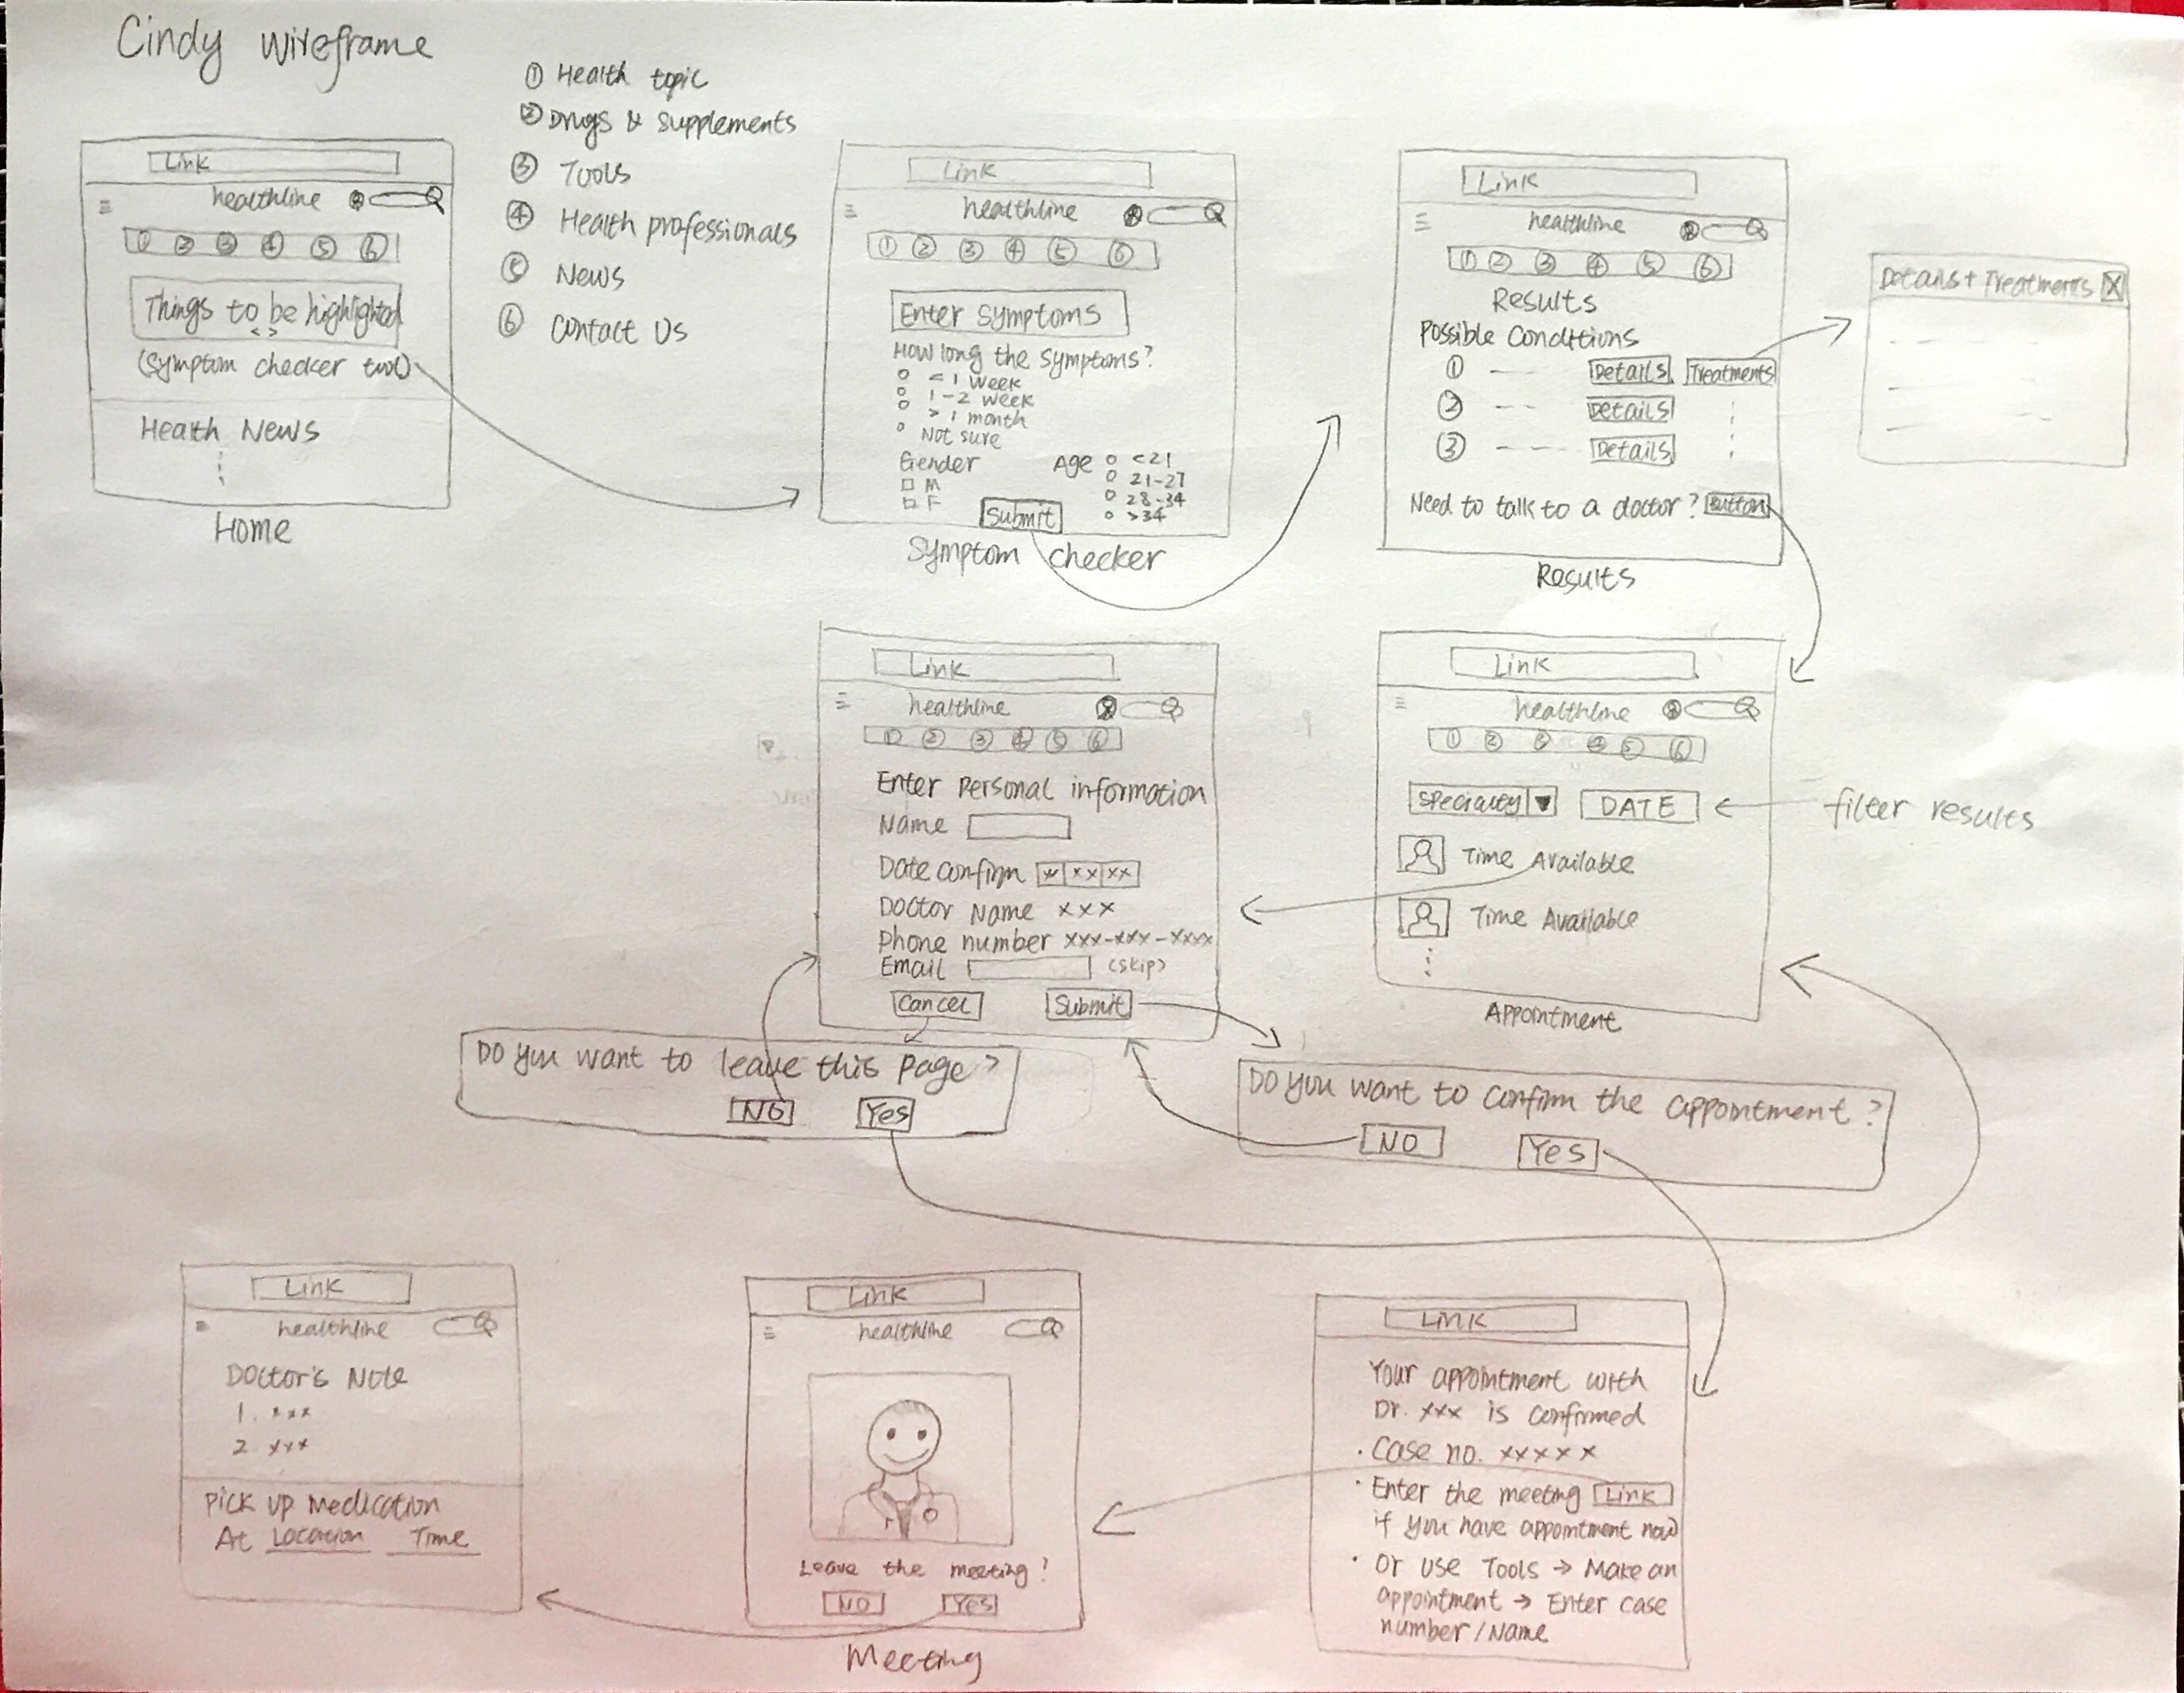 Cindy wireframe
① Health topic
② Drugs & Supplements
③ Tools
④ Health professionals
⑤ News
⑥ Contact Us
Link
healthline
① ② ③ ④ ⑤ ⑥
Things to be highlighted
< >
(Symptom checker tool)
Health News
Home
Link
healthline
① ② ③ ④ ⑤ ⑥
Enter Symptoms
How long the symptoms?
< 1 week
1-2 week
> 1 month
Not sure
Gender
M
F
Age
<21
21-27
28-34
>34
Submit
Symptom checker
Link
healthline
① ② ③ ④ ⑤ ⑥
Results
Possible Conditions
① Details Treatments
② Details
③ Details
Need to talk to a doctor? Button
Results
Details + Treatments X
Link
healthline
① ② ③ ④ ⑤ ⑥
Enter Personal information
Name
Date confirm xx xx xx
Doctor Name xxx
Phone number xxx-xxx-xxxx
Email (skip)
Cancel Submit
Link
healthline
① ② ③ ④ ⑤ ⑥
Specialty ▼ DATE
filter results
Time Available
Time Available
Appointment
Do you want to leave this page?
NO Yes
Do you want to confirm the appointment?
NO Yes
Link
healthline
Doctor's Note
1. xxx
2. xxx
Pick up Medication
At Location Time
Link
healthline
Leave the meeting?
NO Yes
Meeting
Link
Your appointment with
Dr. xxx is confirmed
· Case no. xxxxx
· Enter the meeting Link
if you have appointment now
· Or use Tools → Make an
appointment → Enter case
number/Name